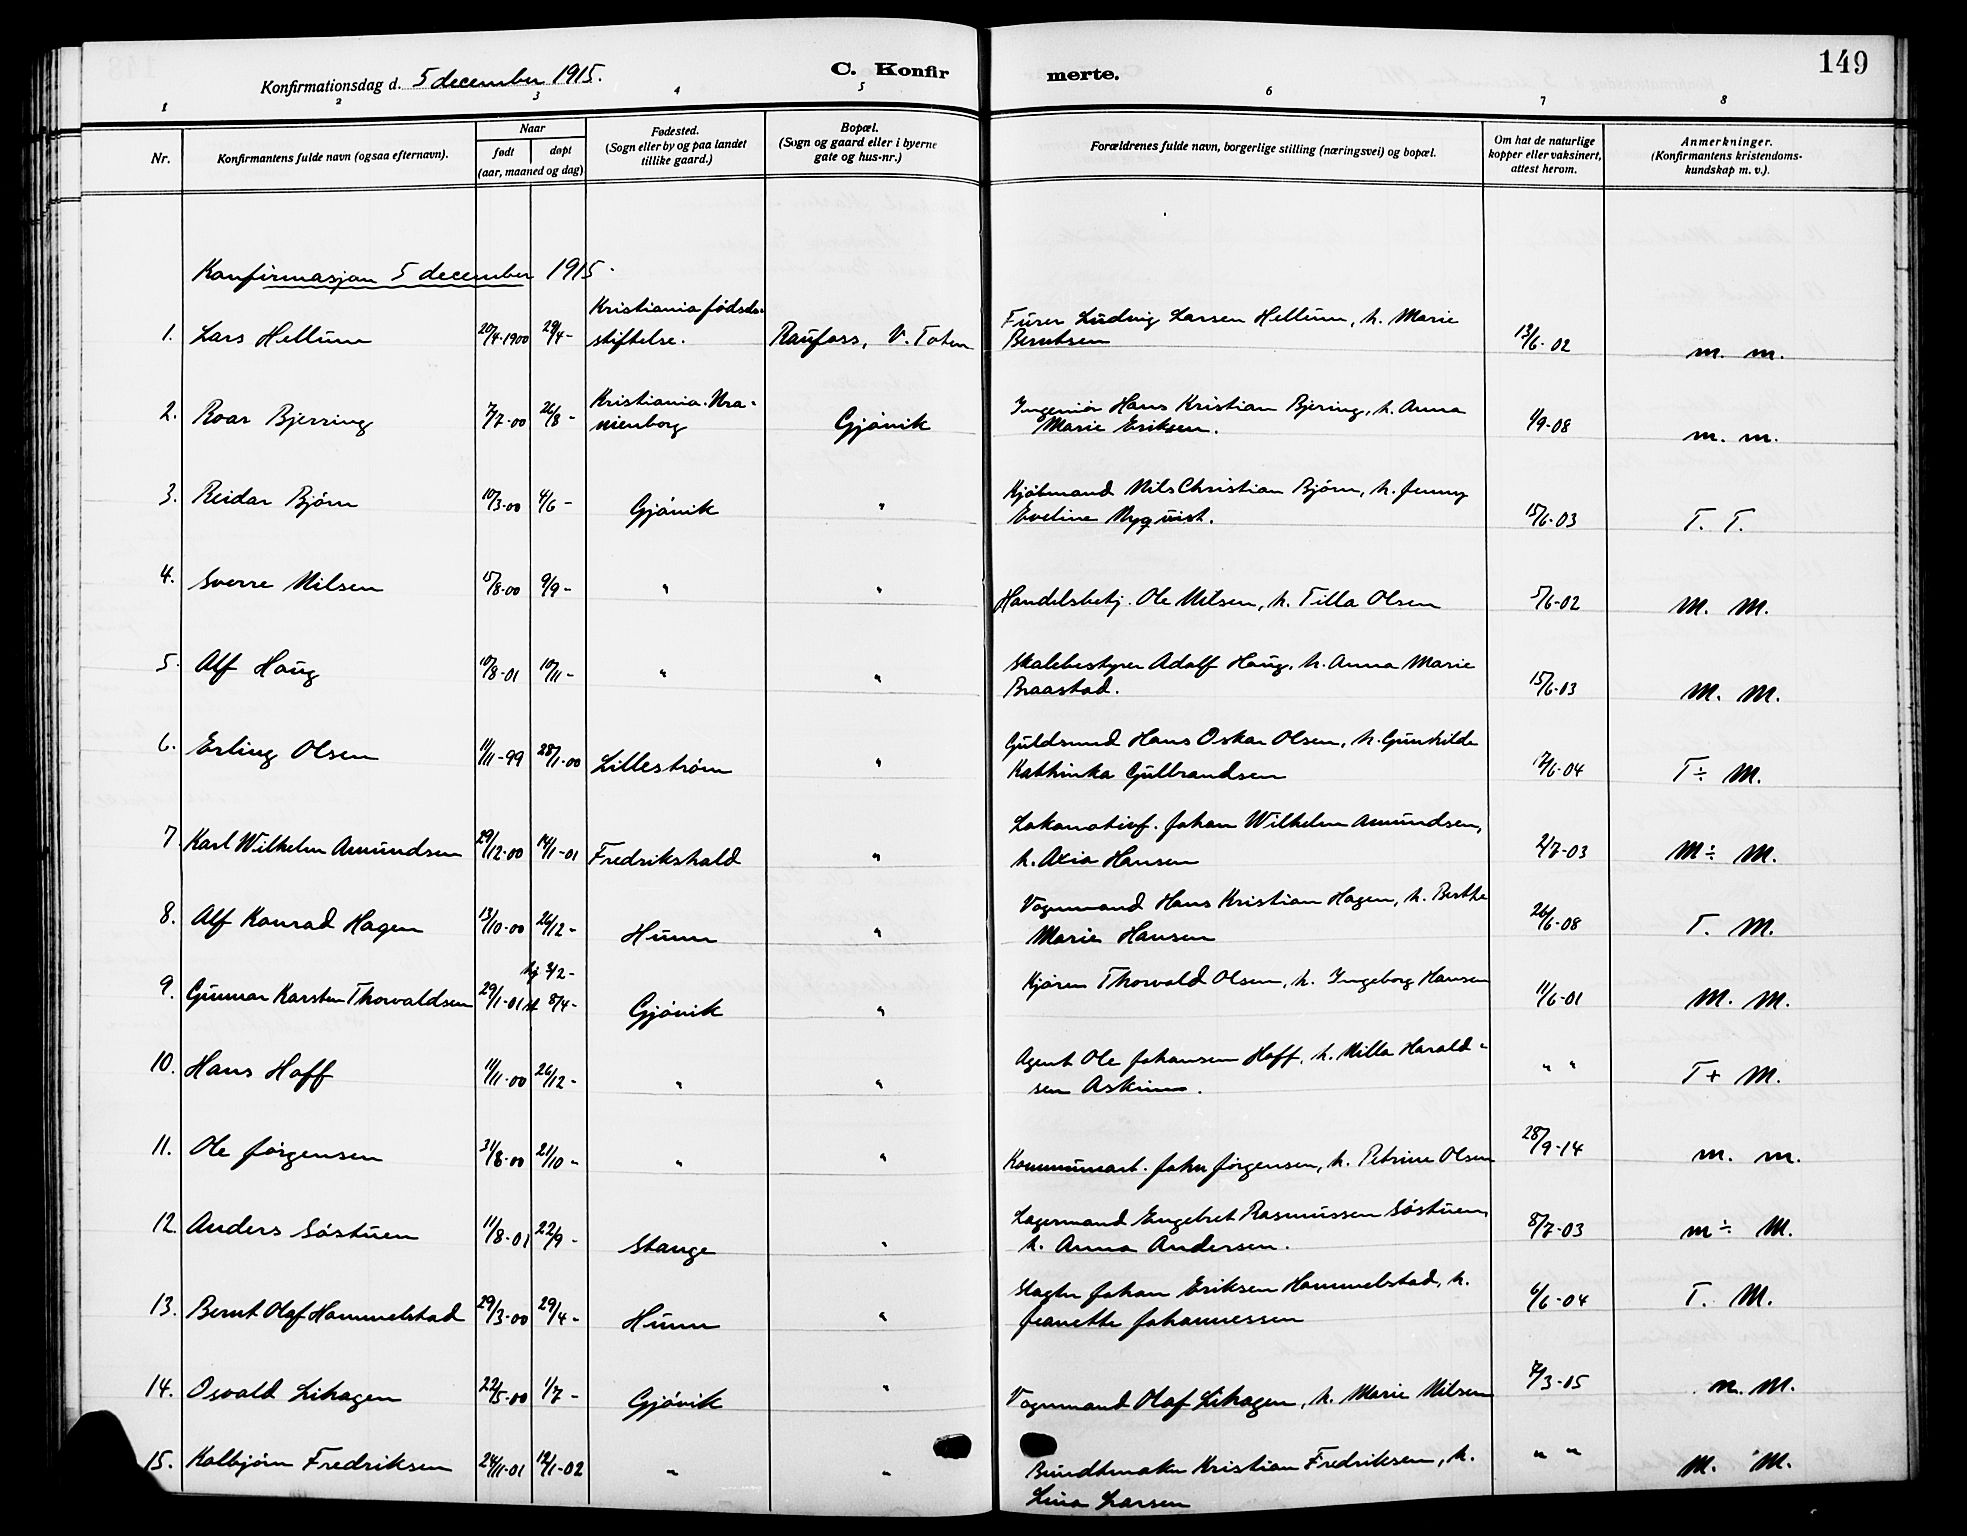 149
Konfirmationsdag d. 5 december 1915.
C. Konfirmerte.
1 2 3 4 5 6 7 8
Nr.
Konfirmantens fulde navn (ogsaa efternavn).
Naar
født døpt
(aar, maaned og dag)
Fødested.
(Sogn eller by og paa landet
tillike gaard.)
Bopæl.
(Sogn og gaard eller i byerne
gate og hus-nr.)
Forældrenes fulde navn, borgerlige stilling (næringsvei) og bopæl.
Om hat de naturlige
kopper eller vaksinert,
attest herom.
Anmerkninger.
(Konfirmantens kristendoms-
kundskap m. v.).
Konfirmasjon 5 december 1915.
1. Lars Hellum 20/4-1900 29/4- Kristiania fødsels-
stiftelse. Raufoss, V. Toten Furer Ludvig Larsen Hellum, h. Marie
Berntsen 13/6-02 m. m.
2. Roar Bjerring 7/7-00 26/8- Kristiania. Ura-
nienborg Gjøvik Ingeniør Hans Kristian Bjering, h. Anna
Marie Eriksen. 1/9-08 m. m.
3. Reidar Bjørn 10/3-00 4/6- Gjøvik " Kjøbmand Nils Christian Bjørn, h. Jenny
Eveline Nyquist. 15/6-03 T. T.
4. Sverre Nilsen 15/8-00 9/9- " " Handelsbetj. Ole Nilsen, h. Tilla Olsen 5/6-02 M. M.
5. Alf Haug 10/8-01 10/11- " " Skolebestyrer Adolf Haug, h. Anna Marie
Braastad. 15/6-03 M. M.
6. Erling Olsen 11/11-99 28/1-00 Lillestrøm " Guldsmed Hans Oskar Olsen, h. Gunhilde
Kathinka Gulbrandsen 17/6-04 T÷ M.
7. Karl Wilhelm Amundsen 29/12-00 14/1-01 Fredrikshald " Lokomotivf. Johan Wilhelm Amundsen,
h. Axia Hansen 2/7-03 M÷ M.
8. Alf Konrad Hagen 13/10-00 26/12- Hunn " Vognmand Hans Kristian Hagen, h. Berthe
Marie Hansen 26/6-08 T. M.
9. Gunnar Karsten Thorvaldsen 29/1-01 hj 3/2- st 8/4- Gjøvik " Kjører Thorvald Olsen, h. Ingeborg Hansen 11/6-01 M. M.
10. Hans Hoff 11/11-00 26/12- " " Agent Ole Johansen Hoff, h. Milla Harald-
sen Askim. " " T+ M.
11. Ole Jørgensen 31/8-00 21/10- " " Kommunearb. John Jørgensen, h. Petrine Olsen 28/9-14 m. m.
12. Anders Søstuen 11/8-01 22/9- Stange " Lagermand Engebret Rasmussen Søstuen,
h. Anna Andersen. 8/7-03 m÷ M.
13. Bernt Olaf Hammelstad 29/3-00 29/4- Hunn " Slagter Johan Eriksen Hammelstad, h.
Jeanette Johannessen 6/6-04 T. M.
14. Osvald Lihagen 22/5-00 1/7- Gjøvik " Vognmand Olaf Lihagen, h. Marie Nilsen 7/3-05 m. M.
15. Kolbjørn Fredriksen 24/11-01 12/1-02 " " Bundtmaker Kristian Fredriksen, h.
Lina Larsen " " M. M.